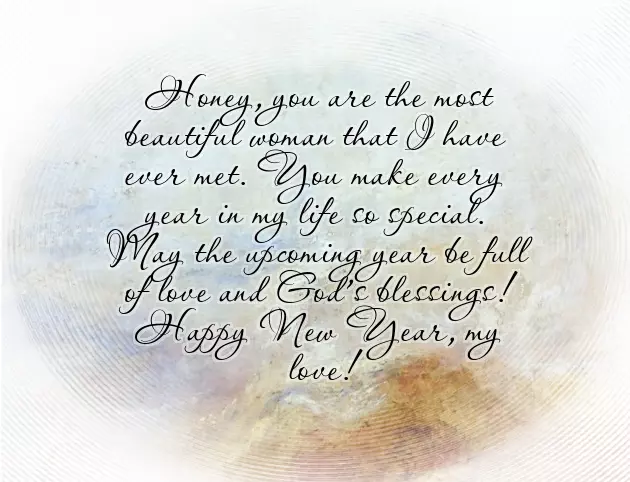 Honey, you are the most
beautiful woman that I have
ever met. You make every
year in my life so special.
May the upcoming year be full
of love and God's blessings!
Happy New Year, my
love!